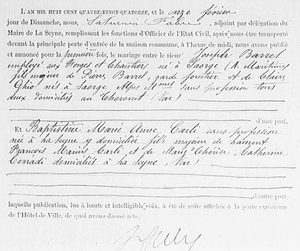 L'AN MIL HUIT CENT QUATRE-VINGT-QUATORZE, et le onze février
jour de Dimanche, nous, Saturnin Fabre, adjoint par délégation du
Maire de La Seyne, remplissant les fonctions d'Officier de l'Etat Civil, après nous être transporté
devant la principale porte d'entrée de la maison commune, à l'heure de midi, nous avons publié
et annoncé pour la première fois, le mariage entre le sieur Joseph Barret
employé aux Forges et Chantiers né à Saorge (A. Maritimes)
fils majeur de Pons Barret, garde forestier et de Claire
Ghio nés à Saorge Alpes Mmes sans profession tous
deux domiciliés au Thoronet Var
d'une part,
Et Baptistine Marie Anne Carli sans profession
née à la Seyne y domiciliée fille majeure de Laurent
François Marius Carli et de Marie Thérèse Catherine
Conradi domiciliés à la Seyne, Var
d'autre part,
laquelle publication, lue à haute et intelligible voix, a été de suite affichée à la porte extérieure
de l'Hôtel-de-Ville, de quoi avons dressé acte.